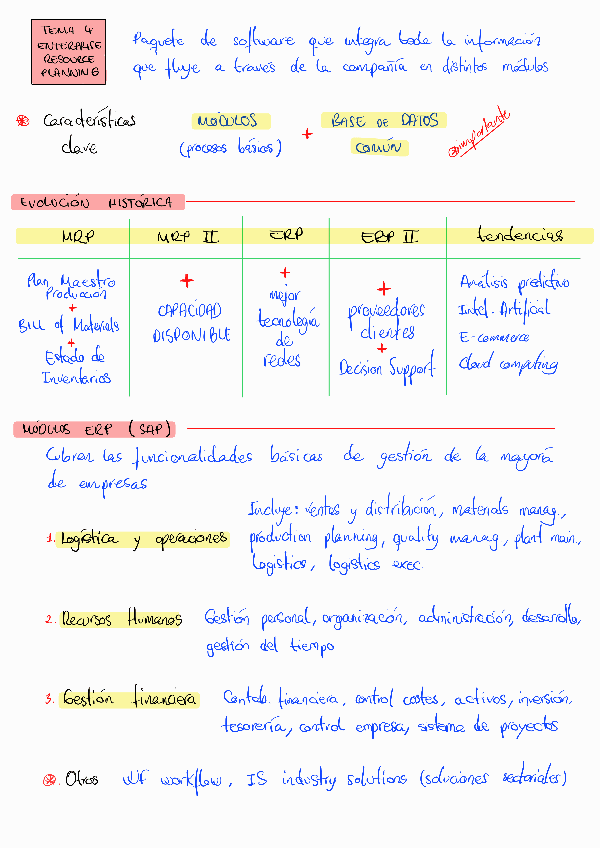 TEMA 4
ENTERPRISE
RESOURCE
PLANNING
Paquete de software que integra toda la información
que fluye a través de la compañía en distintos módulos
Características
clave
MÓDULOS
(procesos básicos)
+
BASE DE DATOS
COMÚN
importante
EVOLUCIÓN HISTÓRICA
MRP
MRP II
ERP
ERP II
tendencias
Plan Maestro
Producción
+
Bill of Materials
+
Estado de
Inventarios
+
CAPACIDAD
DISPONIBLE
+
mejor
tecnología
de
redes
+
proveedores
clientes
+
Decision Support
Análisis predictivo
Intel. Artificial
E-commerce
Cloud computing
MÓDULOS ERP (SAP)
Cubren las funcionalidades básicas de gestión de la mayoría
de empresas
1. Logística y operaciones
Incluye: ventas y distribución, materials manag.,
production planning, quality manag, plant main.,
logistics, logistics exec.
2. Recursos Humanos
Gestión personal, organización, administración, desarrollo,
gestión del tiempo
3. Gestión financiera
Contab. financiera, control costes, activos, inversión,
tesorería, control empresa, sistema de proyectos
Otros
WF workflow, IS industry solutions (soluciones sectoriales)